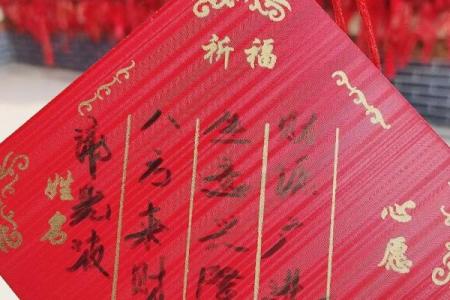 祈福
心愿
财源广进
生意兴隆
八方来财
姓名
光